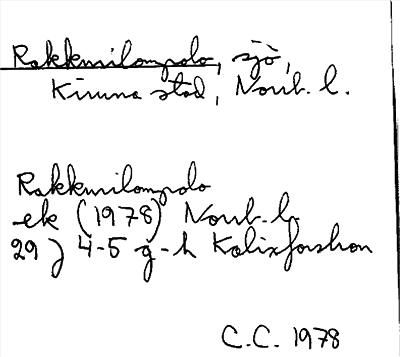 Rakkurilompolo, sjö,
Kiruna stad, Norrb. l.
Rakkurilompolo
ek (1978) Norrb. l.
29 J 4-5 g-h Kalixforsbron
C.C. 1978